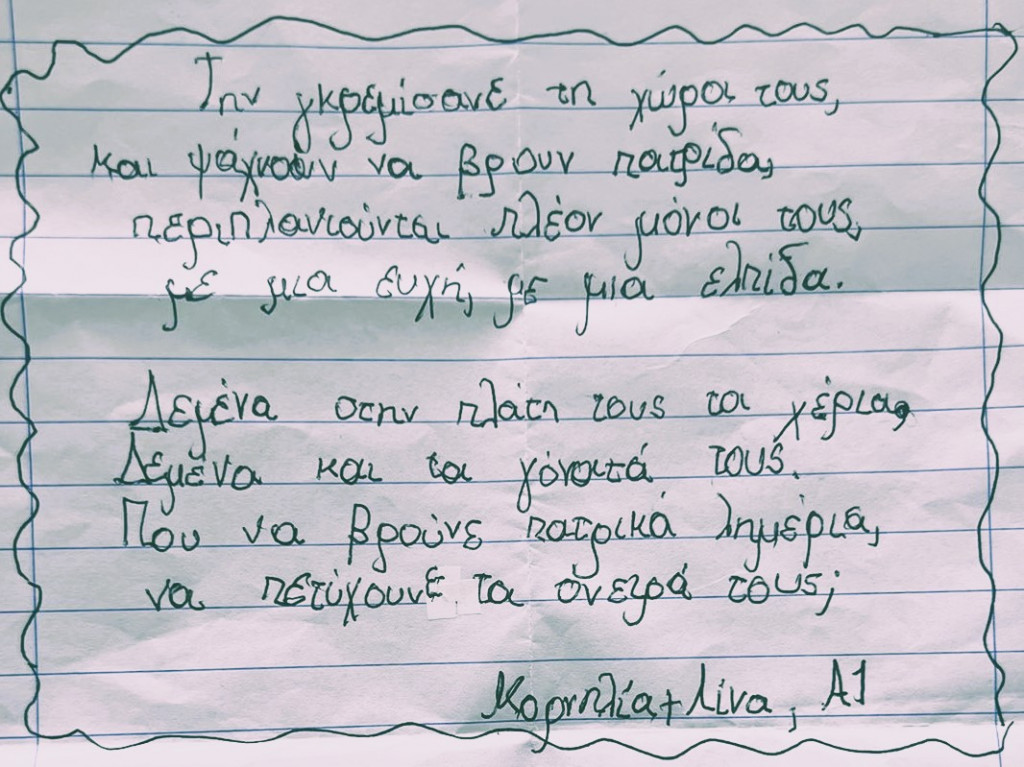 Την γκρεμίσανε τη χώρα τους,
και ψάχνουν να βρουν πατρίδα,
περιπλανιούνται πλέον μόνοι τους,
με μια ευχή, με μια ελπίδα.
Δεμένα στην πλάτη τους τα χέρια,
Δεμένα και τα γόνατά τους.
Που να βρούνε πατρικά λημέρια,
να πετύχουνε τα όνειρά τους;
Κορνηλία+Λίνα, Α1